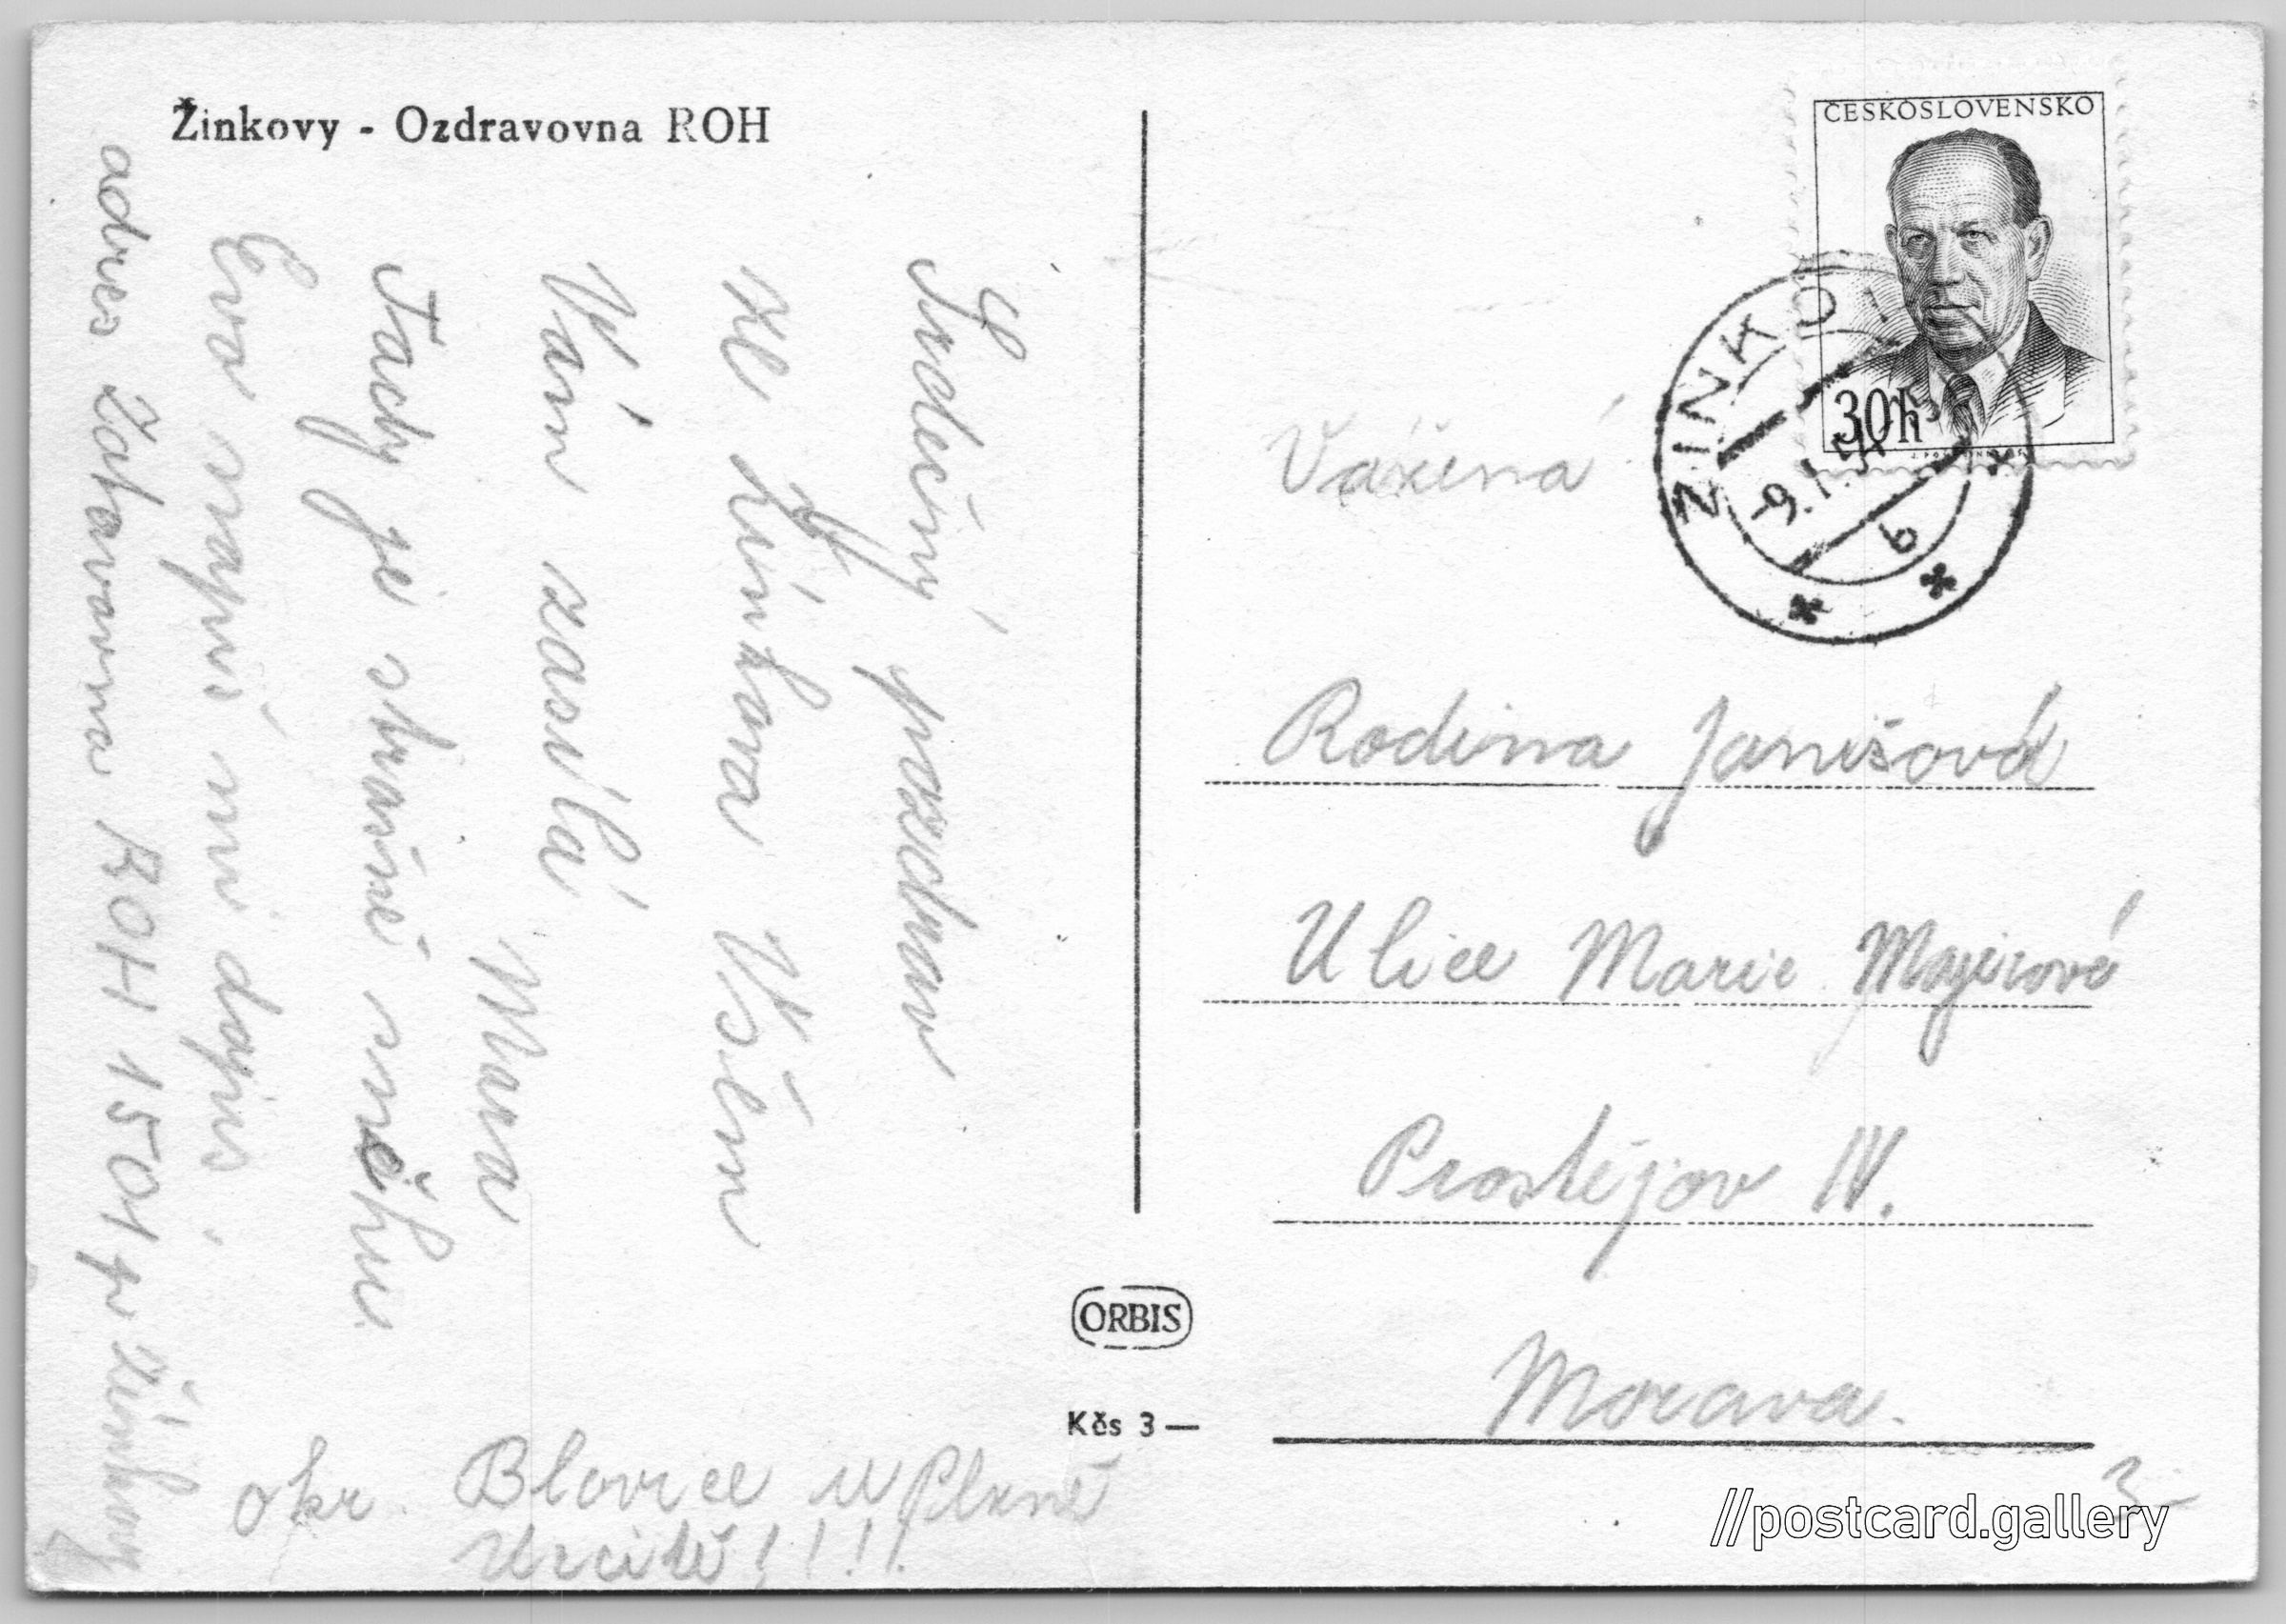 Žinkovy - Ozdravovna ROH
Srdečný pozdrav
ze Žinkova Všem
Vám zasílá
Mara
Tady je strašně sněhu
Eva napiš mi dopis.
adres Zotavovna ROH 1501 p. Žinkovy
okr. Blovice u Plzně
Určitě!!!
ORBIS
Kčs 3—
ČESKOSLOVENSKO
30h
ŽINKO
-9.I.
b
Vážená
Rodina Janišová
Ulice Marie Majerové
Prostějov IV.
Morava.
3-
//postcard.gallery